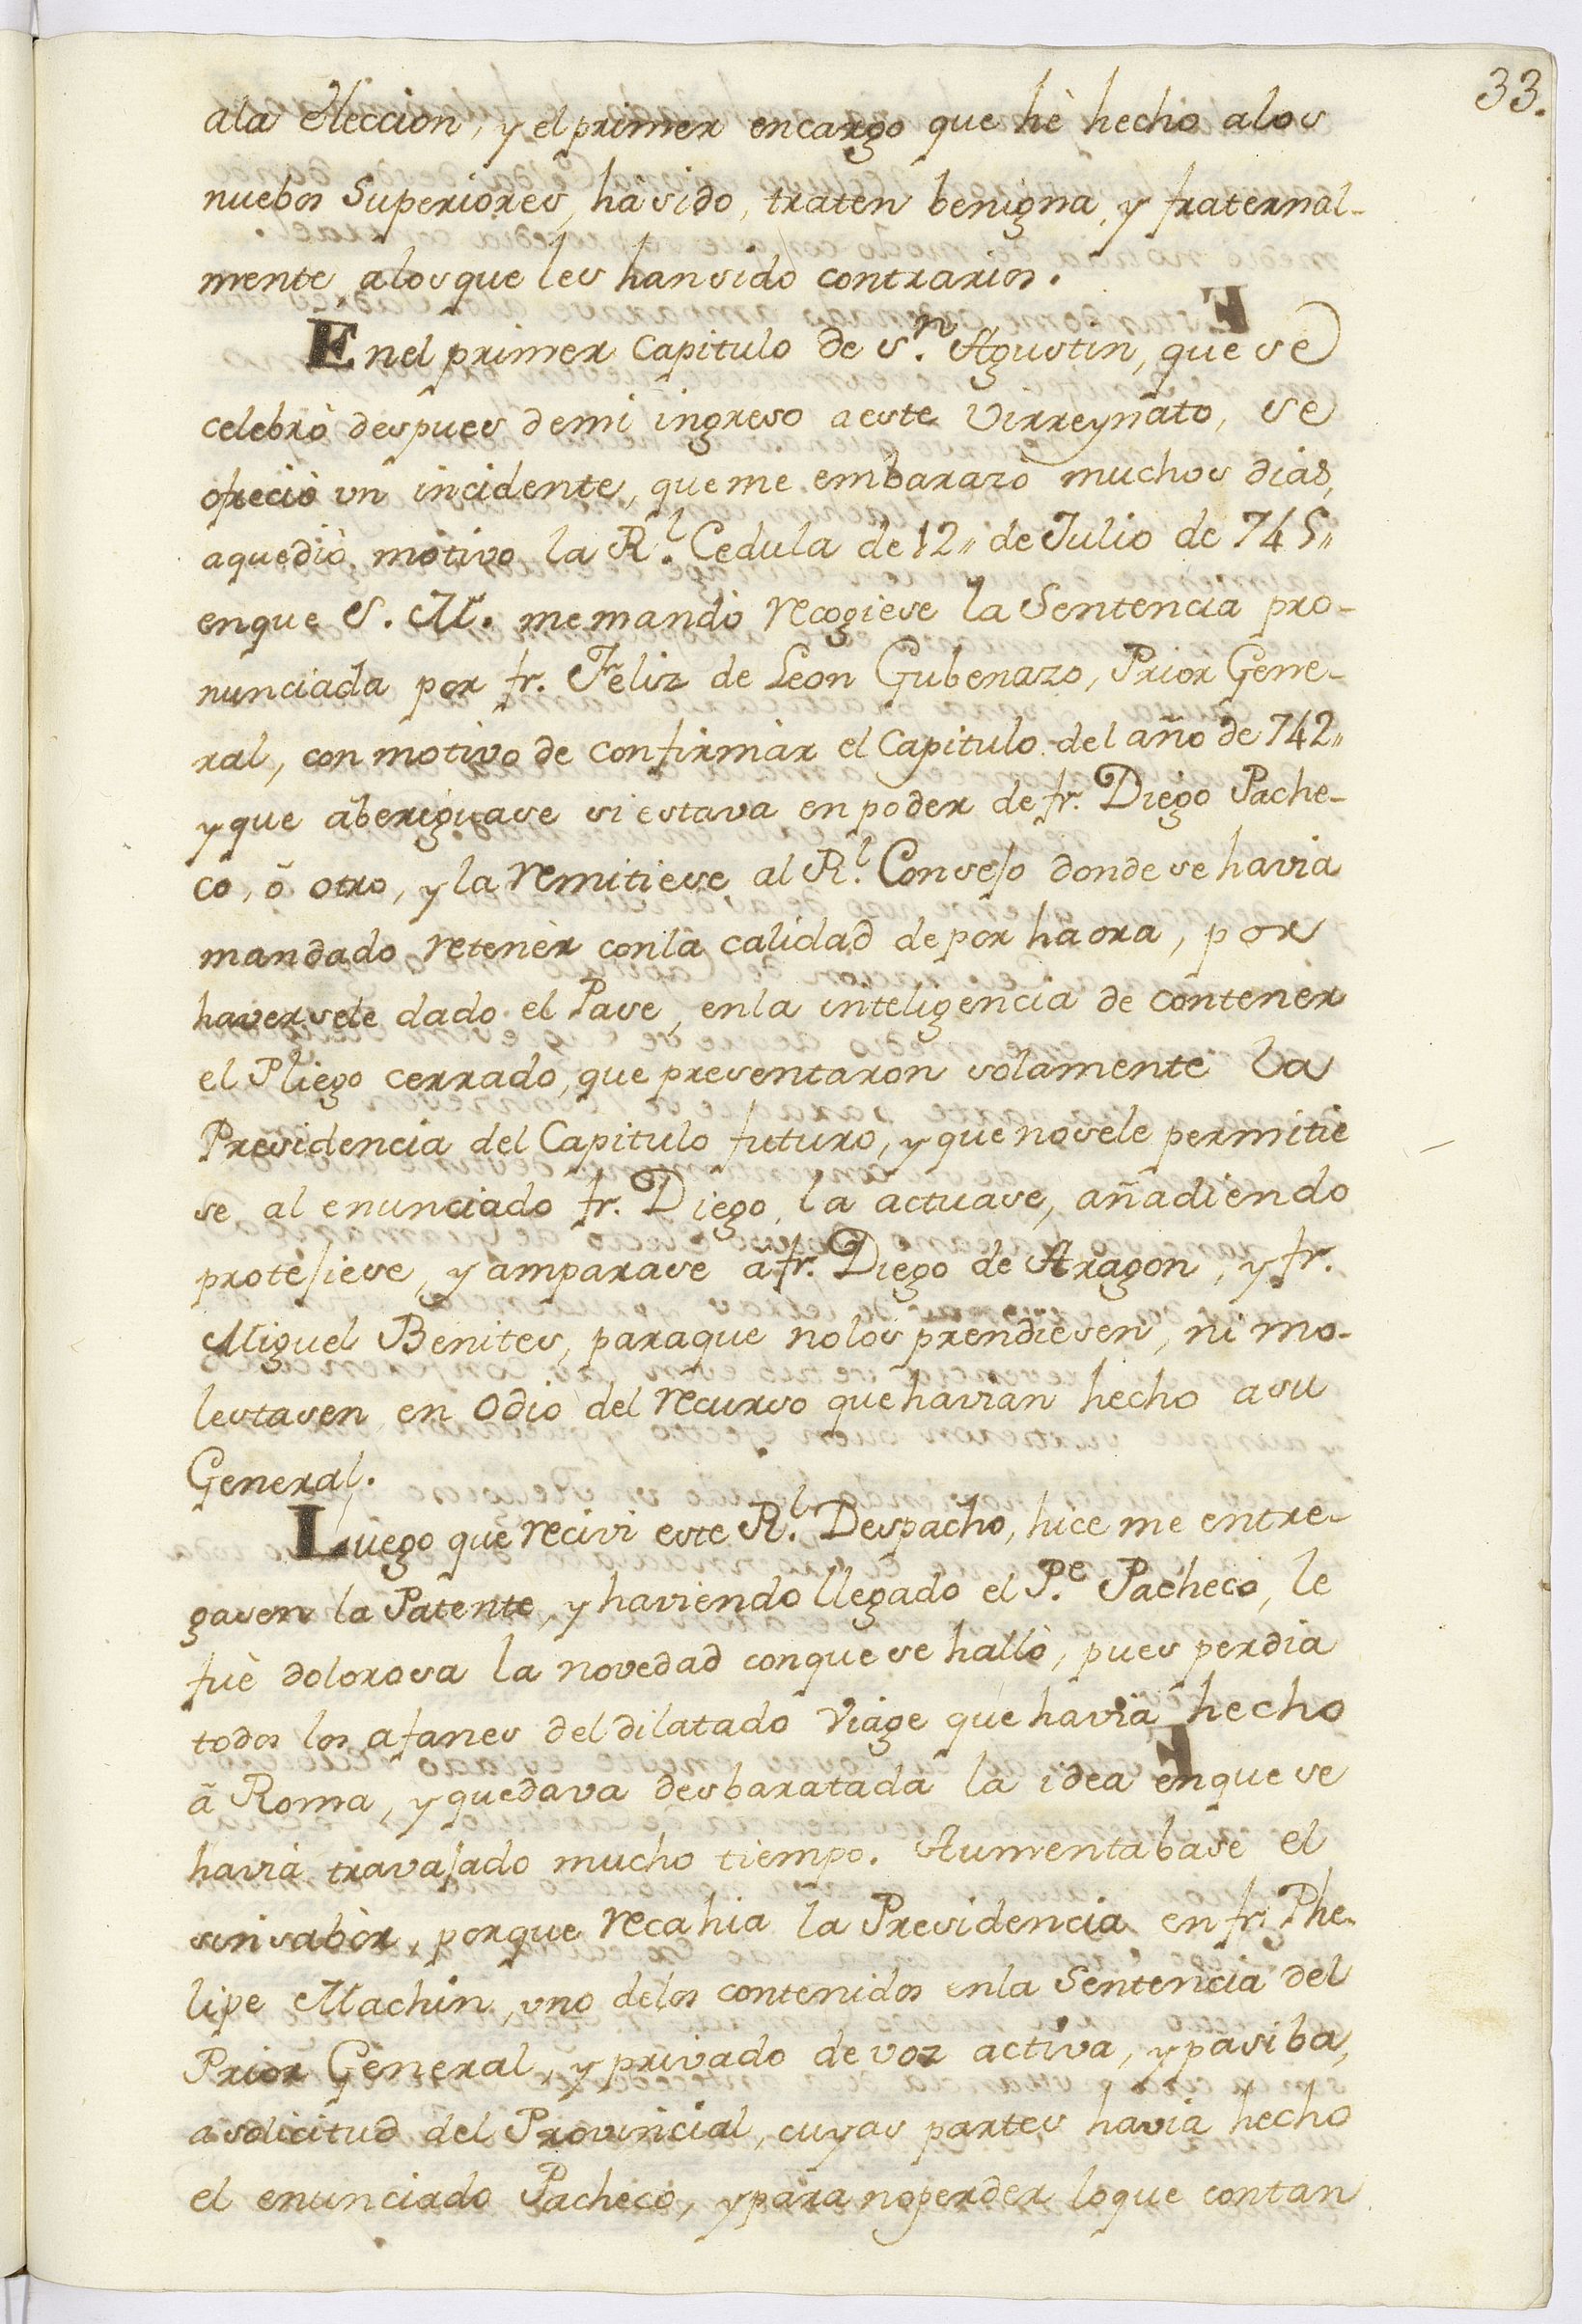 33.
ala eleccion, y el primer encargo que hè hecho alos
nuebos Superiores, hà sido, traten benigna, y fraternal-
mente, alos que les han sido contrarios.
Enel primer Capitulo de S.n Agustin, que se
celebrò despues demi ingreso aeste Virreynato, se
ofreciò vn incidente, queme embarazò muchos dias,
aquediò motivo la R.l Cedula de 12,, de Julio de 745,,
enque S. M. memandò recogiese la Sentencia pro-
nunciada por fr. Feliz de Leon Gubenazo, Prior Gene-
ral, con motivo de confirmar el Capitulo del año de 742,,
y que aberiguase si estava en poder de fr. Diego Pache-
co, ò otro, y la remitiese al R.l Consejo donde se havia
mandado retener conla calidad de por haora, por
haversele dado el Pase, enla inteligencia de contener
el Pliego cerrado, que presentaron solamente la
Presidencia del Capitulo futuro, y que nosele permitie
se al enunciado fr. Diego, la actuase, añadiendo
protejiese, y amparase à fr. Diego de Aragon, y fr.
Miguel Benites, paraque nolos prendiesen, ni mo-
lestasen en odio del recurso que havian hecho asu
General.
Luego que recivi este R.l Despacho, hice me entre-
gasen la Patente, y haviendo llegado el P.e Pacheco, le
fuè dolorosa la novedad conque se hallò, pues perdia
todos los afanes del dilatado Viage que havia hecho
à Roma, y quedava desbaratada la idea enque se
havia travajado mucho tiempo. Aumentabase el
sinsabor, porque recahia la Presidencia en fr. Phe-
lipe Machin, vno delos contenidos enla Sentencia del
Prior General, y privado de voz activa, y pasiba,
a solicitud del Provincial, cuyas partes havia hecho
el enunciado Pacheco, y para noperder loque contan